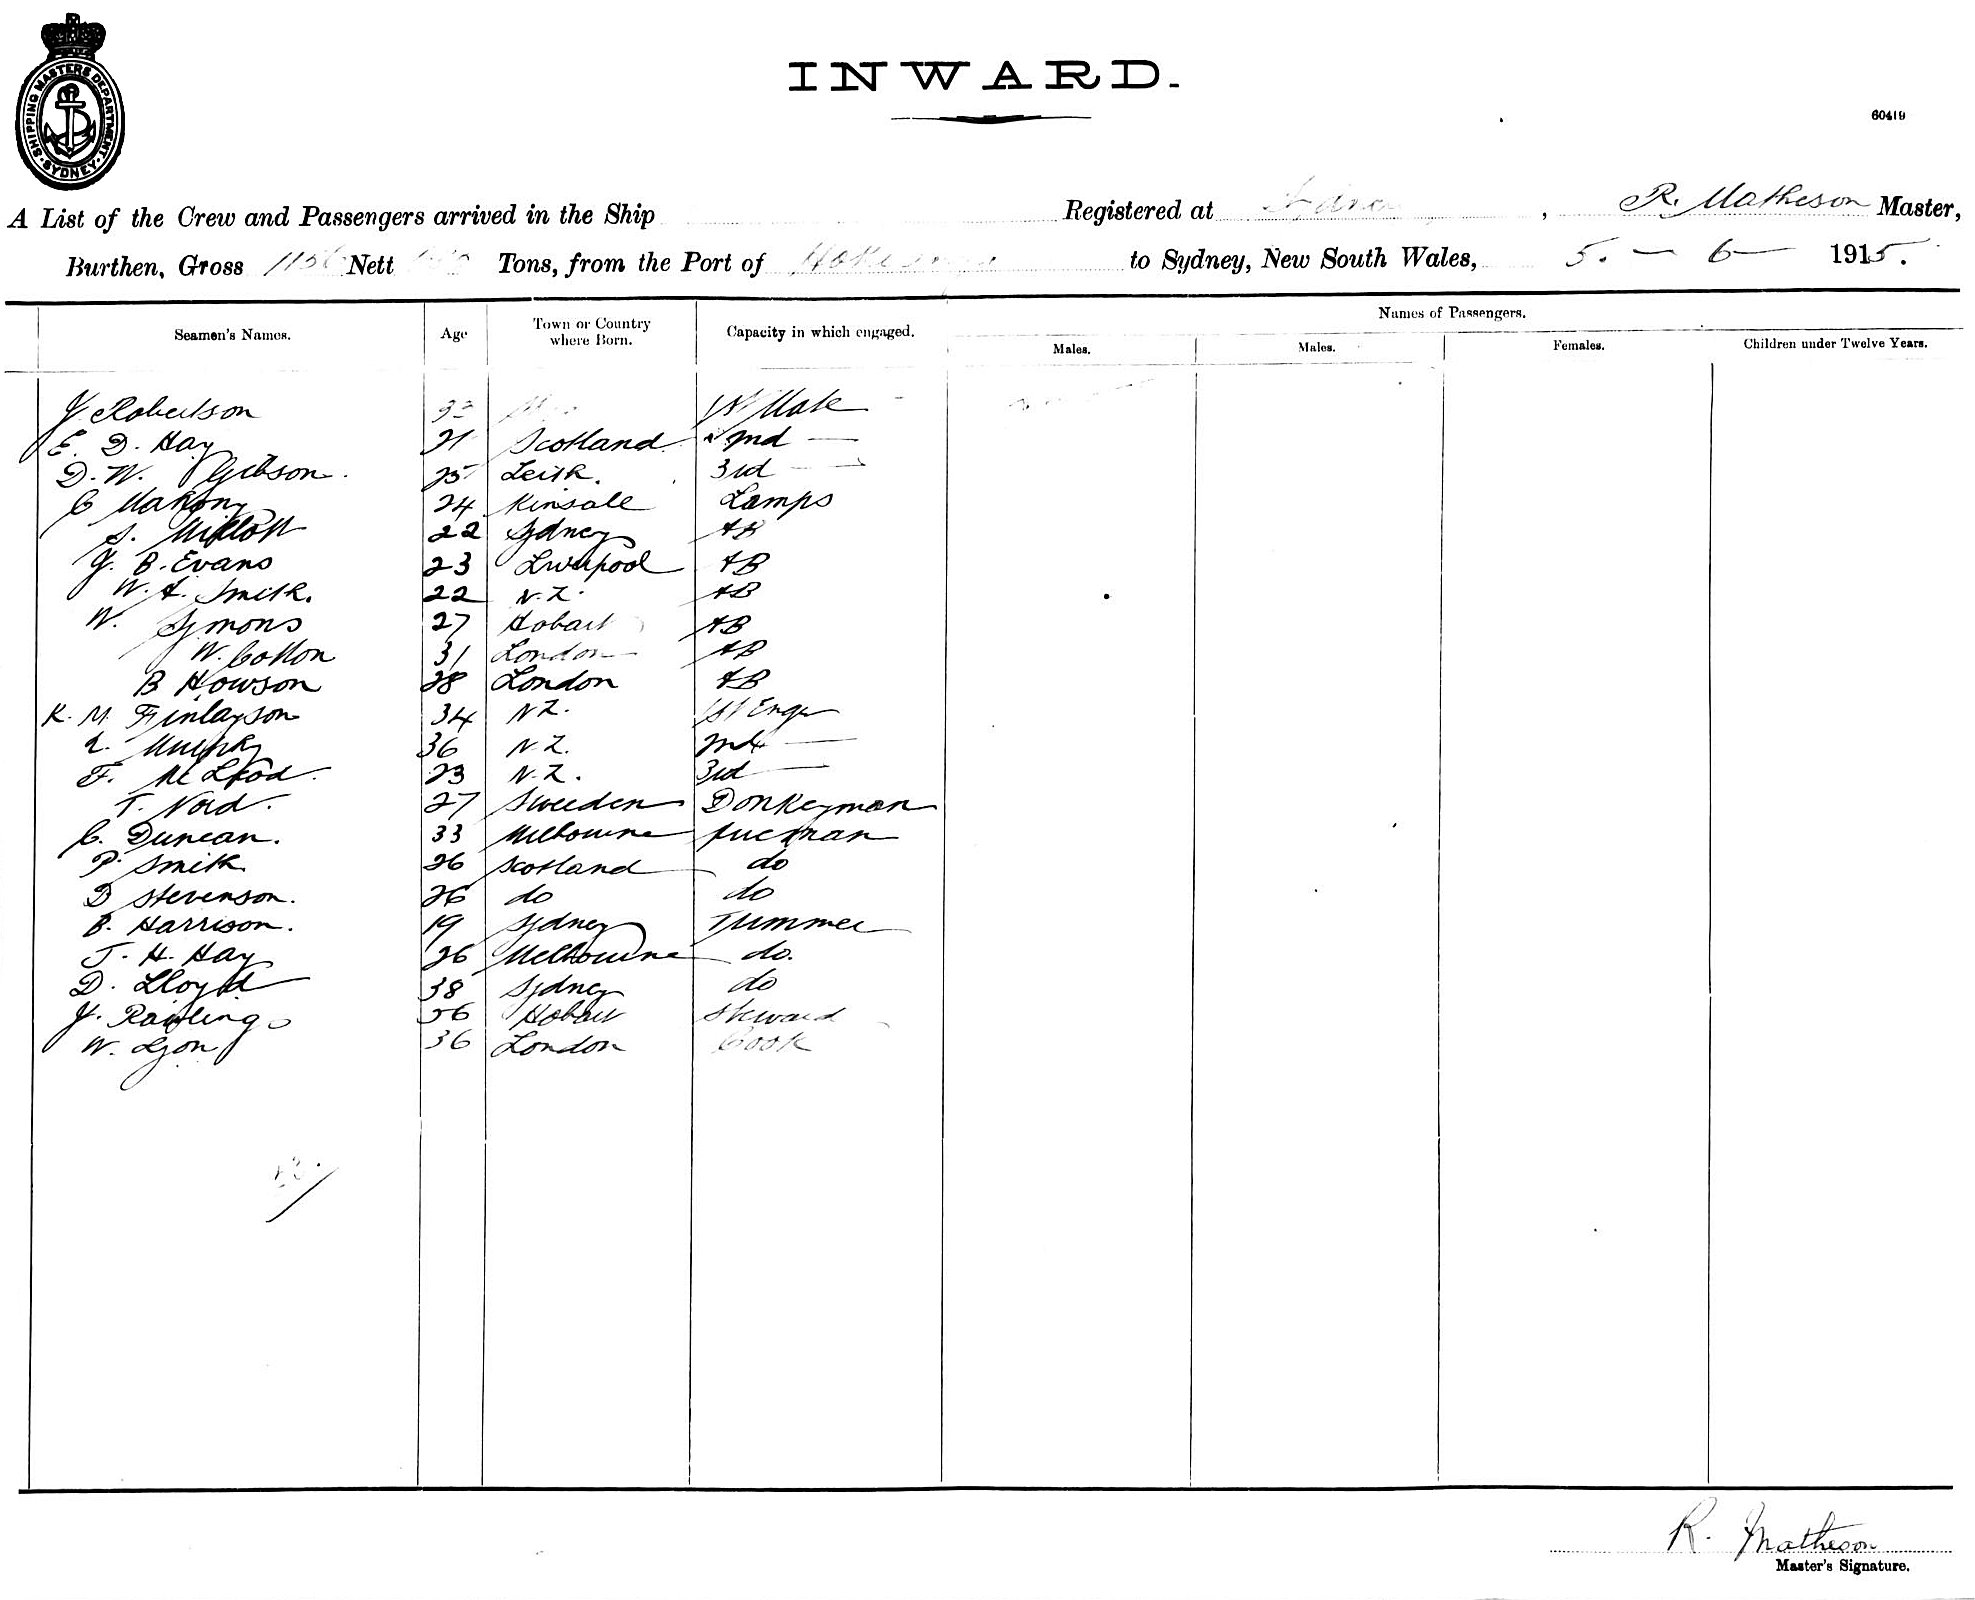 SHIPPING MASTERS DEPARTMENT
SYDNEY
INWARD.
60419
A List of the Crew and Passengers arrived in the Ship Registered at Sydney, R. Matheson Master,
Burthen, Gross Nett Tons, from the Port of to Sydney, New South Wales, 5. - 6 - 1915.
Names of Passengers.
Seamen's Names. Age Town or Country where Born. Capacity in which engaged. Males. Males. Females. Children under Twelve Years.
J Robertson 1st Mate
E. D. Hay 21 Scotland 2nd —
D. W. Gibson. 25 Leith. 3rd —
C Mahony 24 Kinsale Lamps
S. 22 Sydney AB
J. B. Evans 23 Liverpool AB
W. A. Smith. 22 N.Z. AB
W. Symons 27 Hobart AB
W. Cotton 31 London AB
B Howson 28 London AB
K. M. Finlayson 34 NZ. 1st Engr
Murphy 36 N Z. 2nd —
F. McLeod. 23 N.Z. 3rd —
T. Nord. 27 Sweeden Donkeyman
C. Duncan. 33 Melbourne Fireman
P. Smith 26 Scotland do
D Stevenson. 26 do do
B. Harrison. 19 Sydney Trimmer
J. H. Hay 26 Melbourne do.
D. Lloyd 38 Sydney do
J. Rawlings 56 Hobart Steward
W. Lyon 36 London Cook
R. Matheson
Master's Signature.